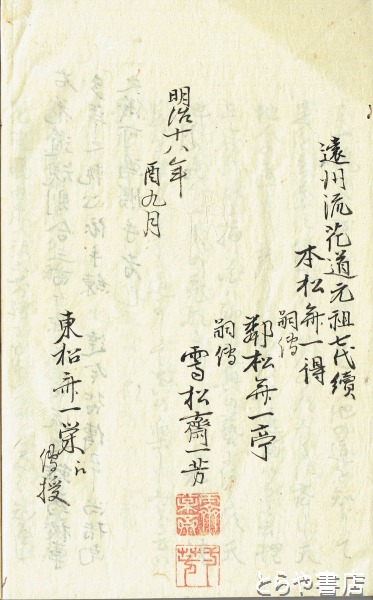 遠州流花道元祖七代續
本松斎一得
嗣傳
鄰松斎一亭
嗣傳
雪松齋一芳
明治十八年
酉九月
東松斎一栄に
傳授
とらや書店